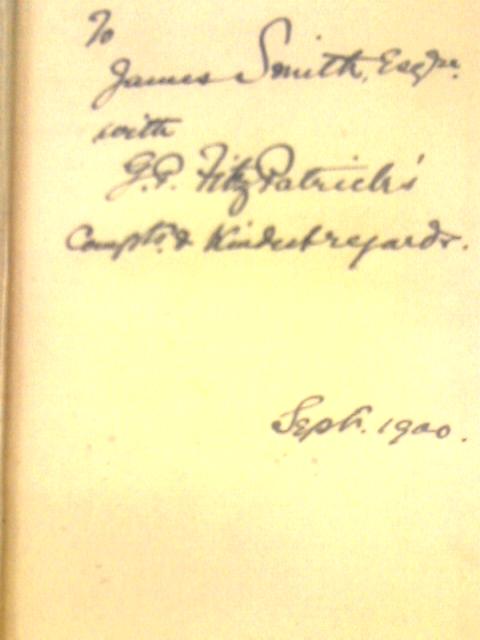 To
James Smith, Esqre.
with
G.P. FitzPatrick's
Compts. & Kindest regards.
Sept. 1900.